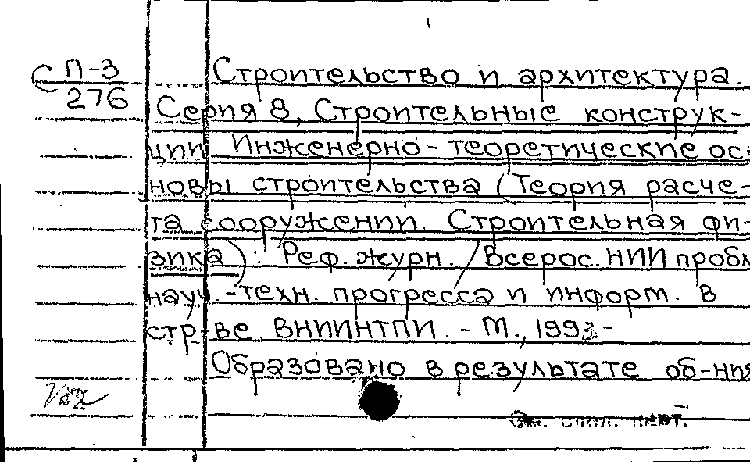 С П-3
276
Строительство и архитектура.
Серия 8, Строительные конструк-
ции Инженерно-теоретические ос-
новы строительства (Теория расче-
та сооружений. Строительная фи-
зика) : Реф. журн. / Всерос. НИИ пробл
науч.-техн. прогресса и информ. в
стр-ве ВНИИНТПИ. - М., 1993-
Образовано в результате об-ния